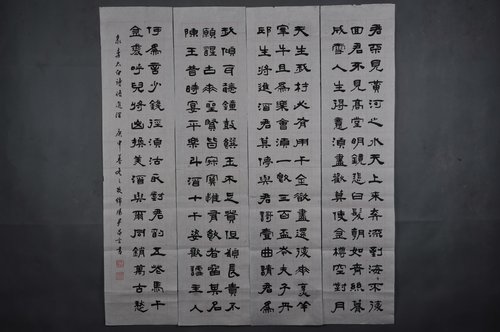 君不見黃河之水天上來奔流到海不復
回君不見高堂明鏡悲白髮朝如青絲暮
成雪人生得意須盡歡莫使金樽空對月
天生我材必有用千金散盡還復來烹羊
宰牛且為樂會須一飲三百杯岑夫子丹
邱生將進酒君莫停與君歌壹曲請君為
我傾耳聽鐘鼓饌玉不足貴但願長醉不
願醒古來聖賢皆寂寞惟有飲者留其名
陳王昔時宴平樂斗酒十千恣歡謔主人
何為言少錢徑須沽取對君酌五花馬千
金裘呼兒將出換美酒與爾同銷萬古愁
李太白詩將進酒 庚申